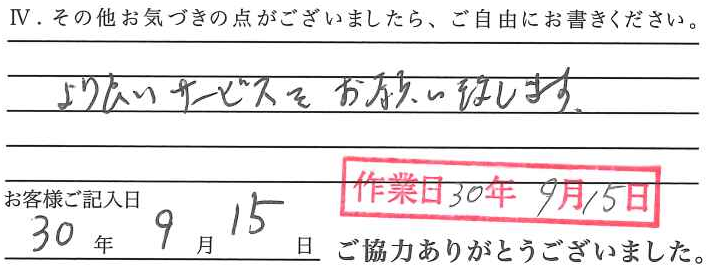 Ⅳ. その他お気づきの点がございましたら、ご自由にお書きください。
より良いサービスをお願い致します。
作業日30年 9月15日
お客様ご記入日
30年 9月 15日 ご協力ありがとうございました。